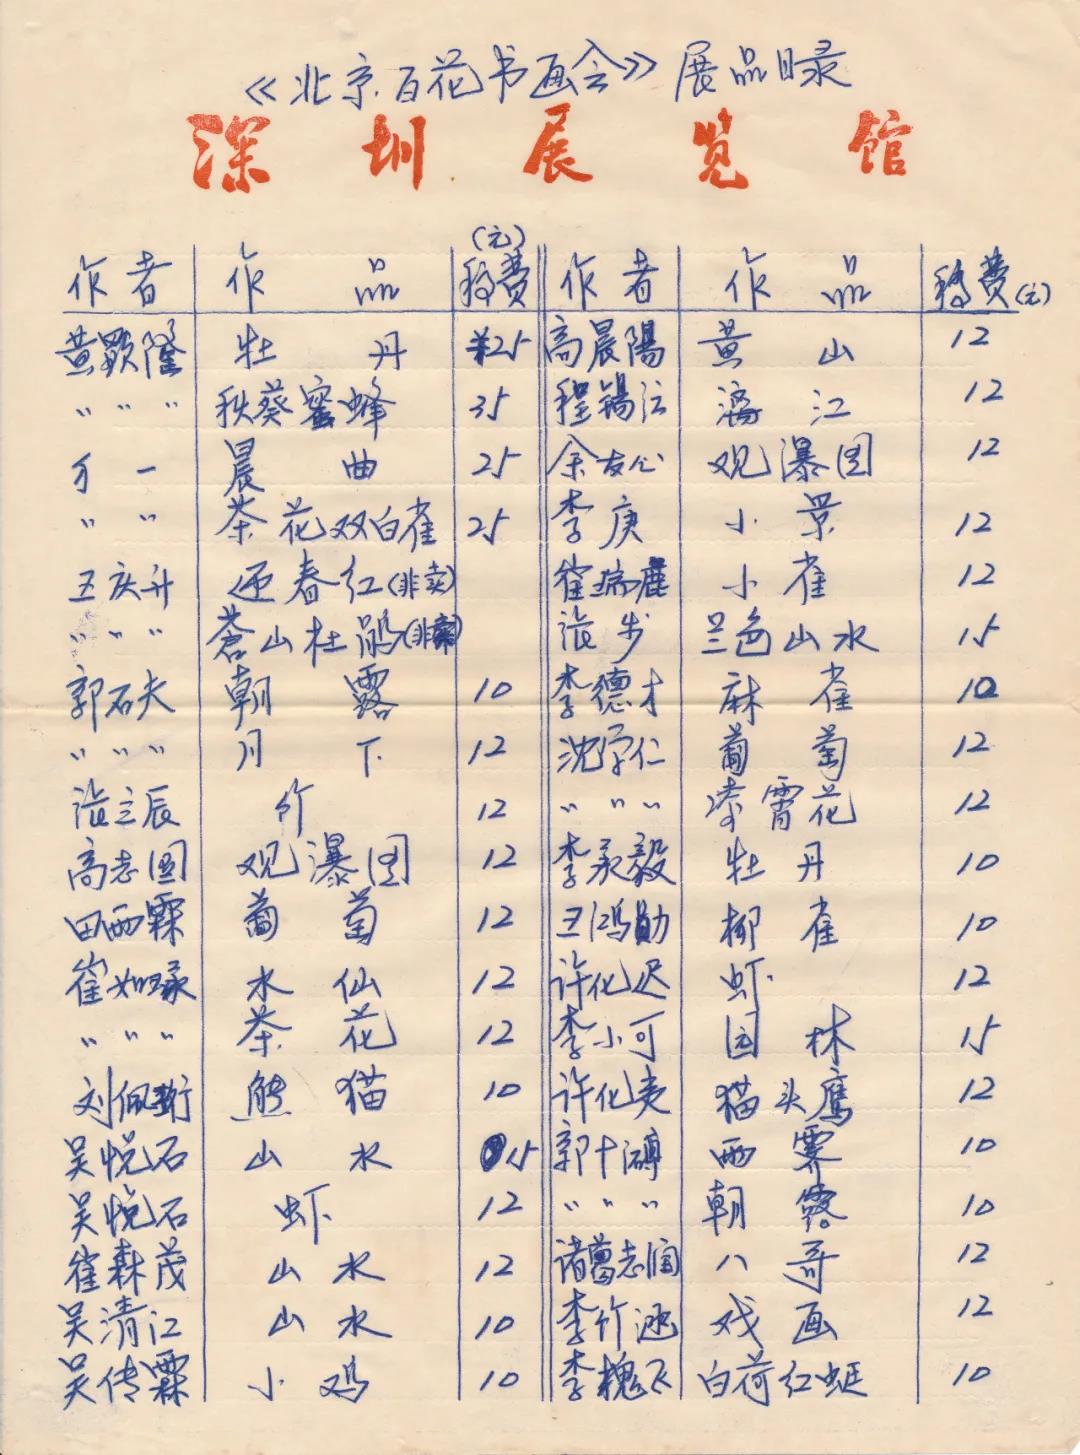 《北京百花书画会》展品目录
深圳展览馆
(元)
作者 作品 稿费 作者 作品 稿费(元)
黄显隆 牡丹 25 高晨陽 黄山 12
〃〃〃 秋葵蜜蜂 35 程锡 漓江 12
万一 晨曲 25 余友心 观瀑图 12
〃〃 茶花双白雀 25 李庚 小景 12
王庆升 迎春红(非卖) 崔瑞鹿 小雀 12
〃〃〃 蒼山杜鹃(非卖) 张步 兰色山水 15
郭石夫 朝露 10 李德才 麻雀 10
〃〃〃 月下 12 沈学仁 葡萄 12
张立辰 竹 12 〃〃〃 凌霄花 12
高志国 观瀑图 12 李永毅 牡丹 10
田西霖 葡萄 12 王鸿勋 柳雀 10
崔如琢 水仙 12 许化迟 虾 12
〃〃〃 茶花 12 李小可 园林 15
刘佩珩 熊猫 10 许化夷 猫头鹰 12
吴悦石 山水 15 郭十 雨霁 10
吴悦石 虾 12 〃〃〃 朝露 10
崔森茂 山水 12 诸葛志润 八哥 12
吴清江 山水 10 李竹涵 戏画 12
吴传霖 小鸡 10 李槐飞 白荷红蜓 10